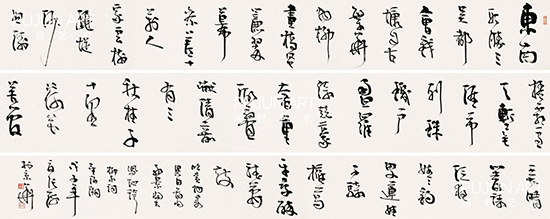 東南
形勝三
吳都
會錢
塘自古
繁華
煙柳
畫橋風
簾翠
幕
參差十
萬人
家雲樹
繞堤
沙
怒濤
卷霜雪
天塹無
涯市
列珠
璣戶
盈羅
綺競豪
奢重
湖疊
巘清嘉
有三
秋桂子
十里
荷花
羌管
弄晴
菱歌
泛夜
嬉嬉釣
叟蓮娃
千騎
擁高
牙乘醉
聽簫
鼓
吟賞煙霞
異日圖將
好景歸去
鳳池誇
柳永詞
望海潮